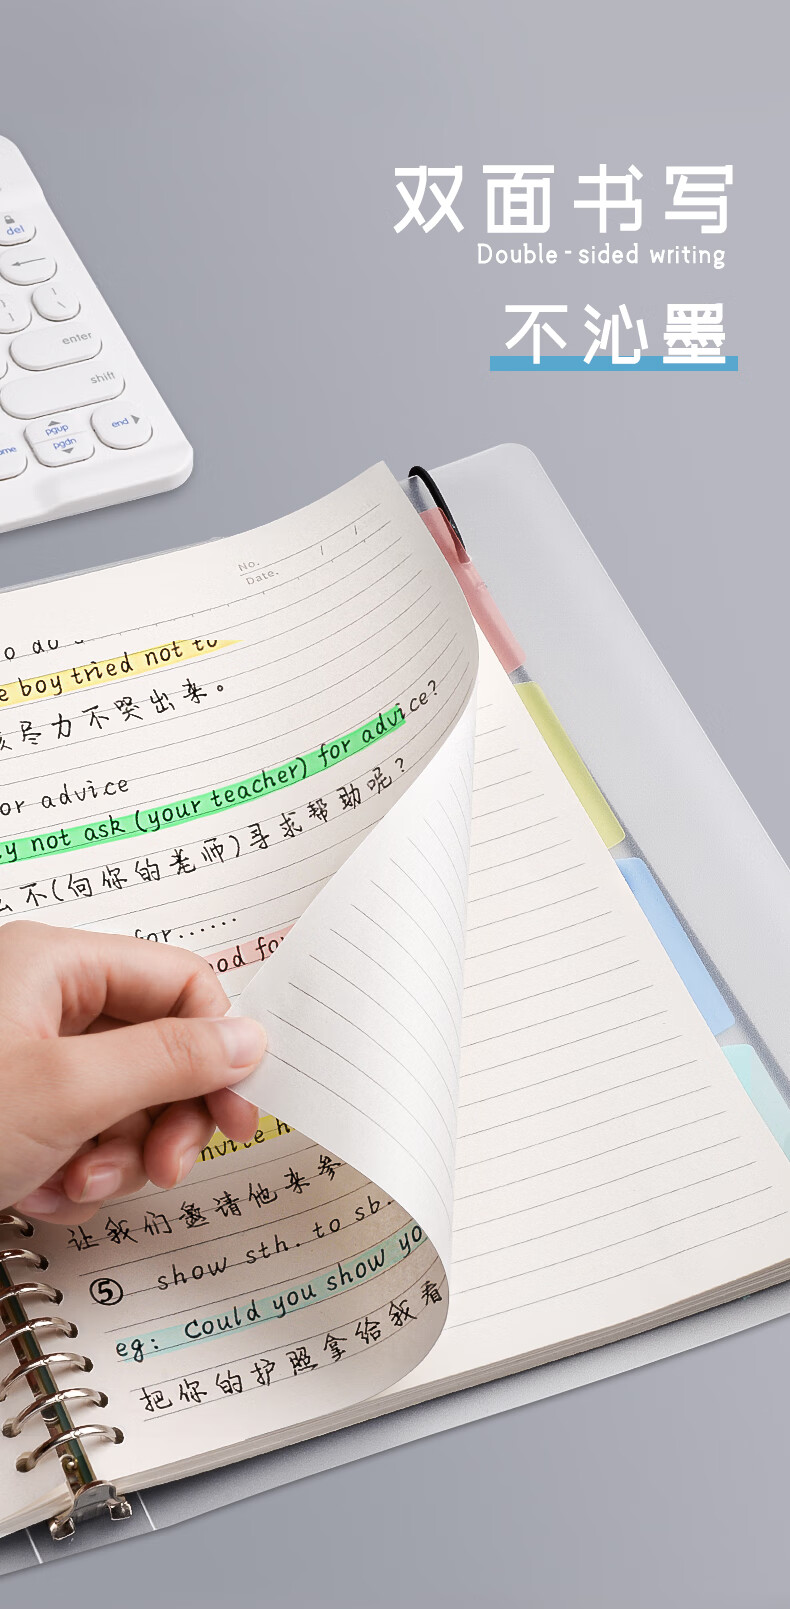 双面书写
Double-sided writing
不沁墨
del
enter
shift
pgup
pgdn
end
No.
Date.
boy tried not to
尽力不哭出来。
or advice
not ask (your teacher) for advice?
不(向你的老师)寻求帮助呢?
for......
invite h
让我们邀请他来参
⑤ show sth. to sb.
eg: Could you show yo
把你的护照拿给我看